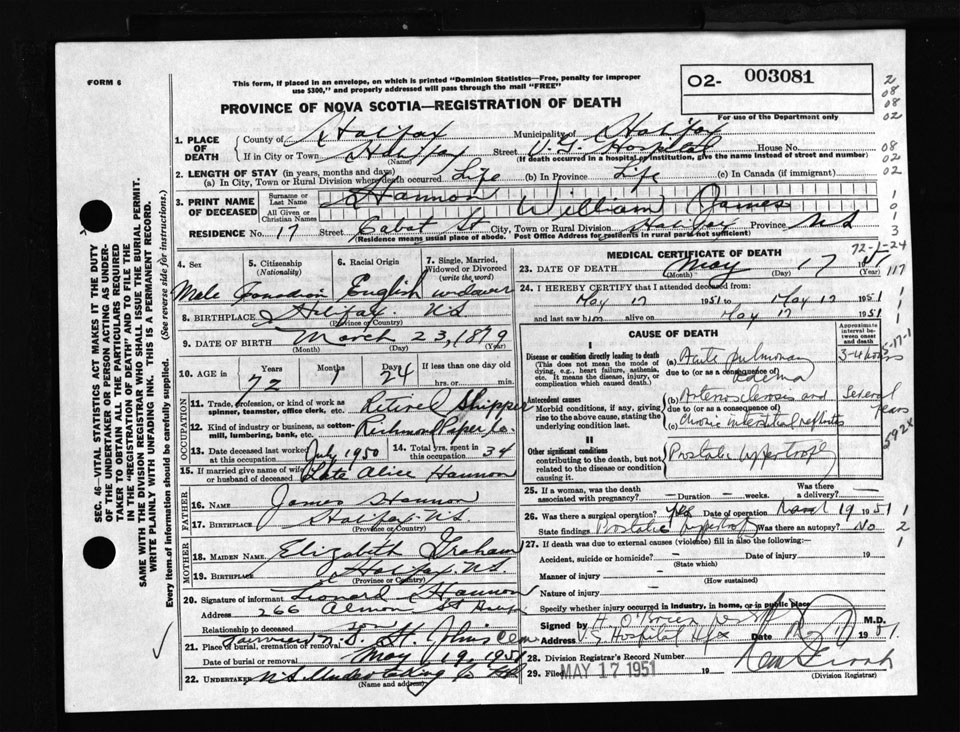 FORM 6
This form, if placed in an envelope, on which is printed "Dominion Statistics—Free, penalty for improper
use $300," and properly addressed will pass through the mail "FREE"
PROVINCE OF NOVA SCOTIA—REGISTRATION OF DEATH
O2- 003081
For use of the Department only
1. PLACE OF DEATH
County of Halifax Municipality of Halifax
If in City or Town Halifax Street V.G. Hospital House No.
(Name) (If death occurred in a hospital or institution, give the name instead of street and number)
2. LENGTH OF STAY (in years, months and days)
(a) In City, Town or Rural Division where death occurred Life (b) In Province Life (c) In Canada (if immigrant)
3. PRINT NAME OF DECEASED
Surname or Last Name Hannon
All Given or Christian Names William James
RESIDENCE No. 17 Street Cabot St City, Town or Rural Division Halifax Province N.S
(Residence means usual place of abode. Post Office Address for residents in rural parts not sufficient)
4. Sex Male
5. Citizenship (Nationality) Canadian
6. Racial Origin English
7. Single, Married, Widowed or Divorced (write the word) widower
8. BIRTHPLACE Halifax N.S.
(Province or Country)
9. DATE OF BIRTH March 23, 1879
(Month) (Day) (Year)
10. AGE Years 72 Months 1 Days 24 If less than one day old
hrs. or min.
OCCUPATION
11. Trade, profession, or kind of work as spinner, teamster, office clerk, etc. Retired Shipper
12. Kind of industry or business, as cotton-mill, lumbering, bank, etc. Richmond Paper Co.
13. Date deceased last worked at this occupation July 1950 14. Total yrs. spent in this occupation 34
15. If married give name of wife or husband of deceased Late Alice Hannon
FATHER
16. NAME James Hannon
17. BIRTHPLACE Halifax N.S.
(Province or Country)
MOTHER
18. MAIDEN NAME Elizabeth Graham
19. BIRTHPLACE Halifax N.S.
(Province or Country)
20. Signature of informant Leonard Hannon
Address 266 Almon St
Relationship to deceased Son
21. Fairview N.S. St. John's Cem
Place of burial, cremation or removal
Date of burial or removal May 19, 1951
22. UNDERTAKER N.S. Undertaking Co
(Name and address)
MEDICAL CERTIFICATE OF DEATH
72-1-24
23. DATE OF DEATH May 17 1951
(Month) (Day) (Year)
24. I HEREBY CERTIFY that I attended deceased from:
May 17 1951 to May 17 1951
and last saw him alive on May 17 1951
CAUSE OF DEATH
Approximate interval between onset and death
I
Disease or condition directly leading to death
(This does not mean the mode of dying, e.g., heart failure, asthenia, etc. It means the disease, injury, or complication which caused death.)
(a) Acute pulmonary edema
due to (or as a consequence of)
3-4 hours
Antecedent causes
Morbid conditions, if any, giving rise to the above cause, stating the underlying condition last.
(b) Arteriosclerosis and
due to (or as a consequence of)
(c) Chronic interstitial nephritis
Several years
592X
II
Other significant conditions
contributing to the death, but not related to the disease or condition causing it.
Prostatic hypertrophy
25. If a woman, was the death associated with pregnancy? — Duration — weeks. Was there a delivery? —
26. Was there a surgical operation? yes Date of operation March 19 1951
State findings Prostatic hypertrophy Was there an autopsy? No
27. If death was due to external causes (violence) fill in also the following:—
Accident, suicide or homicide? — Date of injury 19
(State which)
Manner of injury —
(How sustained)
Nature of injury —
Specify whether injury occurred in industry, in home, or in public place
Signed by H. O'Brien M.D.
Address V.G. Hospital Hfx Date
28. Division Registrar's Record Number
29. Filed MAY 17 1951 19
(Division Registrar)
SEC. 46—VITAL STATISTICS ACT MAKES IT THE DUTY
OF THE UNDERTAKER OR PERSON ACTING AS UNDER-
TAKER TO OBTAIN ALL THE PARTICULARS REQUIRED
IN THE "REGISTRATION OF DEATH" AND TO FILE THE
SAME WITH THE DIVISION REGISTRAR WHO SHALL ISSUE THE BURIAL PERMIT.
WRITE PLAINLY WITH UNFADING INK. THIS IS A PERMANENT RECORD.
Every item of information should be carefully supplied. (See reverse side for instructions.)
2
08
08
02
08
02
02
1
0
1
3
117